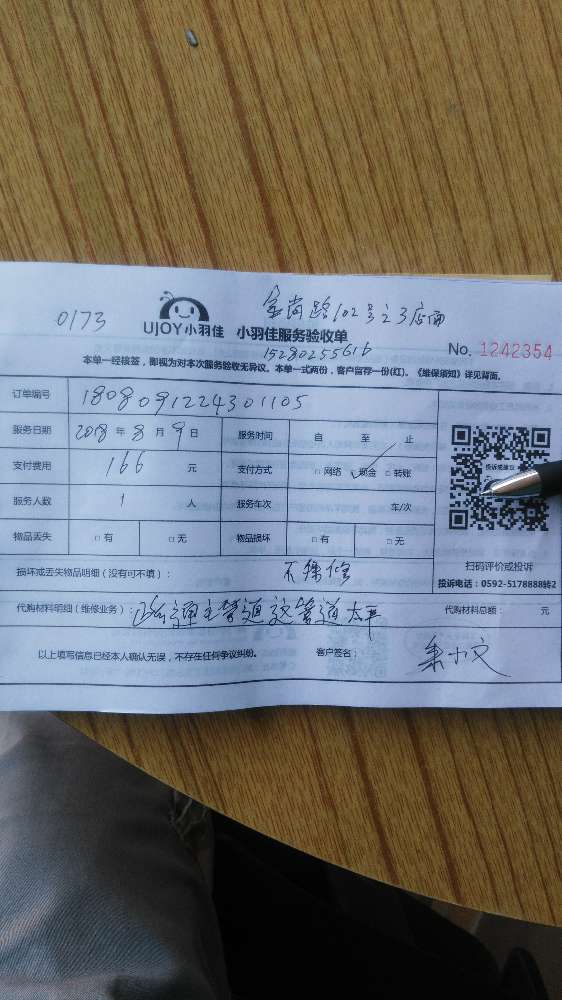 0173
UJOY小羽佳 小羽佳服务验收单
102号之3店面
15280255616
No. 1242354
本单一经接签，即视为对本次服务验收无异议。本单一式两份，客户留存一份(红)。《维保须知》详见背面。
订单编号 1808091224301105
服务日期 2018 年 8 月 9 日 服务时间 自 至 止
支付费用 166 元 支付方式 □网络 ✓现金 □转账
服务人数 1 人 服务车次 车/次
物品丢失 □有 □无 物品损坏 □有 □无
投诉或建议
扫码评价或投诉
投诉电话：0592-5178888转2
损坏或丢失物品明细（没有可不填）： 不保修
代购材料明细（维修业务）： 疏通主管道 这管道太平 代购材料总额： 元
以上填写信息已经本人确认无误，不存在任何争议纠纷。 客户签名： 小文